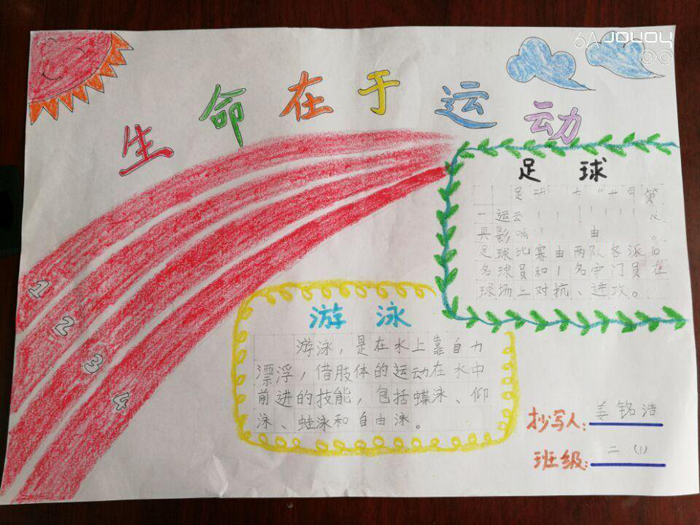 生命在于运动
足球
足球
第
一运动
具影响 由
足球比赛由两队各派10
名球员和1名守门员在
球场上对抗、进攻。
游泳
游泳,是在水上靠自力
漂浮,借肢体的运动在水中
前进的技能,包括蝶泳、仰
泳、蛙泳和自由泳。
1
2
3
4
抄写人:姜铭浩
班级:二(1)